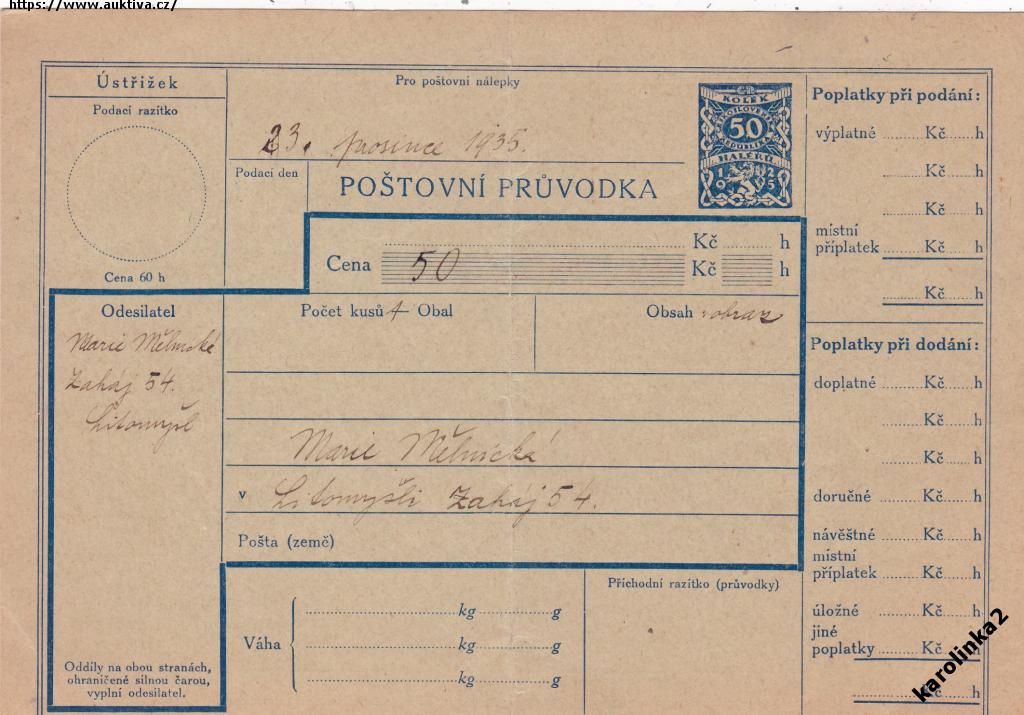 https://www.auktiva.cz/
Ústřižek
Podací razítko
Cena 60 h
Pro poštovní nálepky
23. prosince 1935.
Podací den
POŠTOVNÍ PRŮVODKA
KOLEK
ČESKOSLOVENSKÁ
50
REPUBLIKA
HALÉŘŮ
1925
Kč h
Cena 50 Kč h
Odesilatel
Marie Mělnická
Zaháj 54.
Litomyšl
Oddíly na obou stranách,
ohraničené silnou čarou,
vyplní odesilatel.
Počet kusů 1 Obal
Obsah obraz
Marie Mělnická
v Litomyšli Zaháj 54.
Pošta (země)
Váha
kg g
kg g
kg g
Příchodní razítko (průvodky)
Poplatky při podání:
výplatné Kč h
Kč h
Kč h
místní
příplatek Kč h
Kč h
Poplatky při dodání:
doplatné Kč h
Kč h
Kč h
doručné Kč h
návěštné Kč h
místní
příplatek Kč h
úložné Kč h
jiné
poplatky Kč h
Kč h
karolinka2